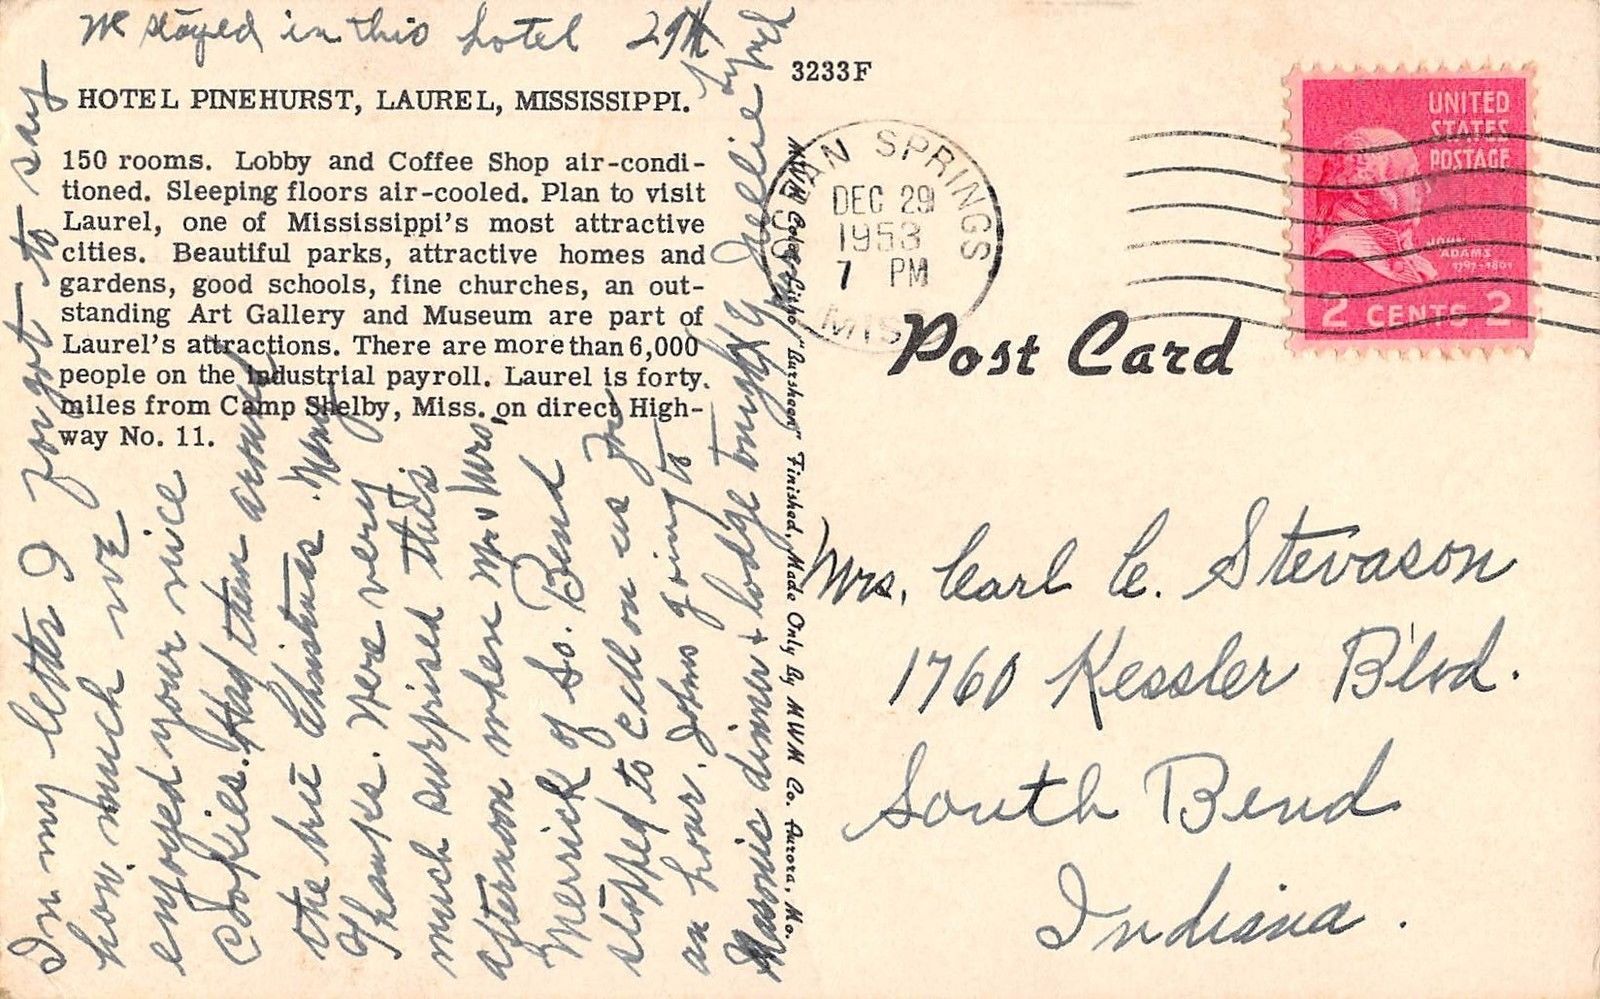 We stayed in this hotel 29th
HOTEL PINEHURST, LAUREL, MISSISSIPPI.
150 rooms. Lobby and Coffee Shop air-condi-
tioned. Sleeping floors air-cooled. Plan to visit
Laurel, one of Mississippi's most attractive
cities. Beautiful parks, attractive homes and
gardens, good schools, fine churches, an out-
standing Art Gallery and Museum are part of
Laurel's attractions. There are more than 6,000
people on the industrial payroll. Laurel is forty
miles from Camp Shelby, Miss. on direct High-
way No. 11.
In my letter I forgot to say
how much we
enjoyed your nice
Cookies. Had them around
the tree Christmas. Many
Thanks. Were very
much surprised this
afternoon when Mr & Mrs.
Merrick of So. Bend
stopped to call on us for
an hour. Johns going to
Masonic dinner & lodge tonight
Lynch
3233F
MWM Color-Litho
Finished, Made Only By MWM Co. Aurora, Mo.
OCEAN SPRINGS
DEC 29
1953
7 PM
MISS
UNITED
STATES
POSTAGE
JOHN
ADAMS
1797-1801
2 CENTS 2
Post Card
Mrs. Carl C. Stevason
1760 Kessler Blvd.
South Bend
Indiana.